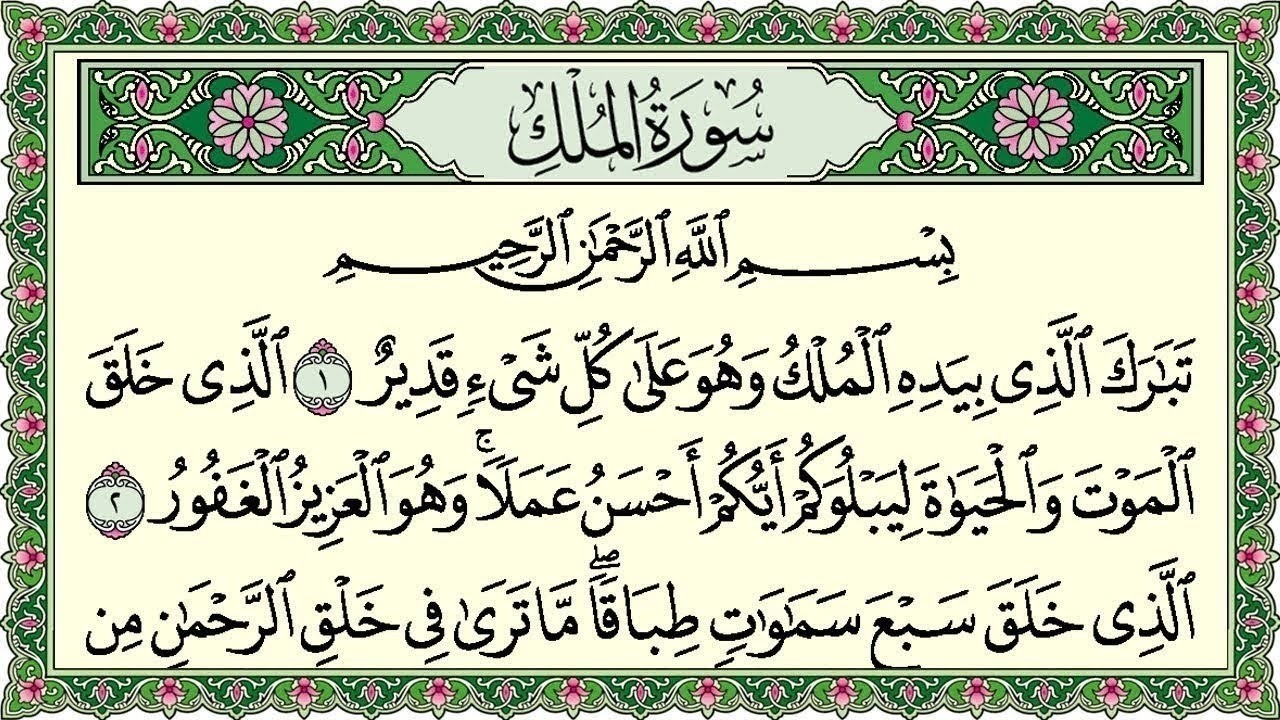 سُورَةُ الْمُلْكِ
بِسْمِ ٱللَّهِ ٱلرَّحْمَٰنِ ٱلرَّحِيمِ
تَبَٰرَكَ ٱلَّذِى بِيَدِهِ ٱلْمُلْكُ وَهُوَ عَلَىٰ كُلِّ شَىْءٍ قَدِيرٌ ١ ٱلَّذِى خَلَقَ
ٱلْمَوْتَ وَٱلْحَيَوٰةَ لِيَبْلُوَكُمْ أَيُّكُمْ أَحْسَنُ عَمَلًا ۚ وَهُوَ ٱلْعَزِيزُ ٱلْغَفُورُ ٢
ٱلَّذِى خَلَقَ سَبْعَ سَمَٰوَٰتٍ طِبَاقًا ۖ مَّا تَرَىٰ فِى خَلْقِ ٱلرَّحْمَٰنِ مِن